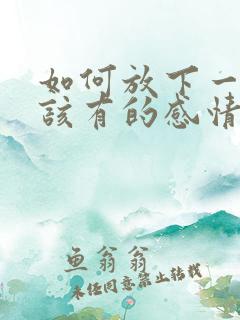 如何放下一
该有的感情
鱼翁翁
未经同意禁止转载